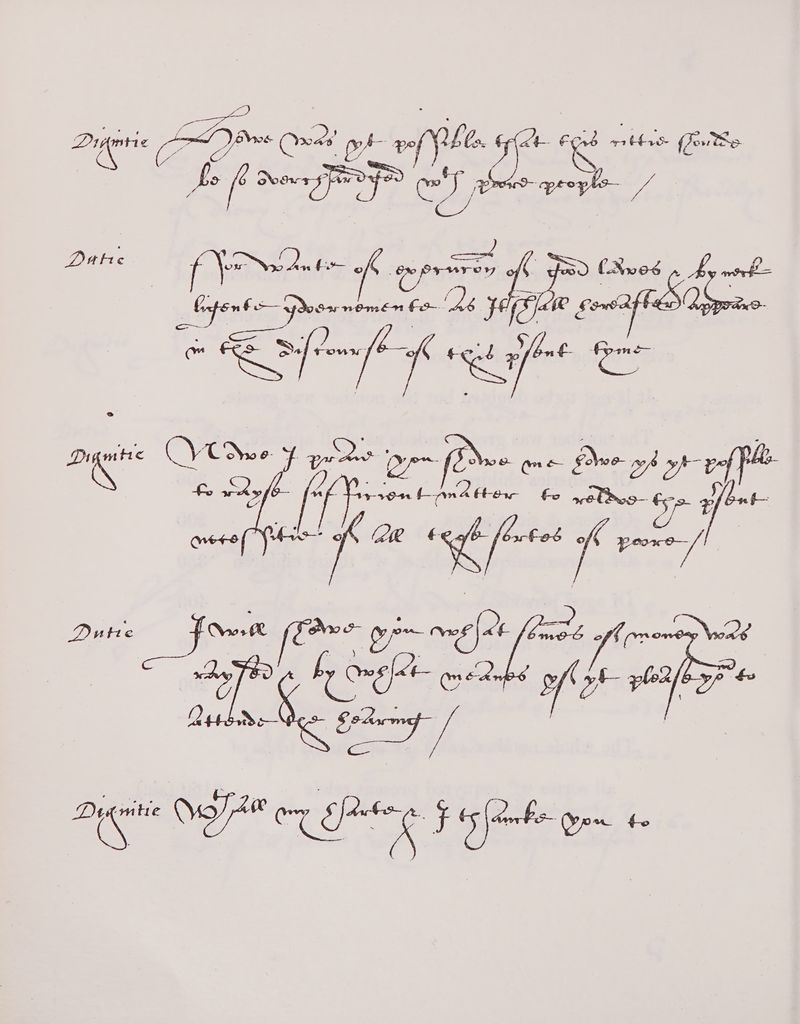 Dignitie Howe was yt possible that this cittie shoulde
be so overchardged wth poore people /
Dutie ffor wante off execucōn off good lawes & by neck-
ligente governemente As It shall hereafter Appeare
in the discourse off this p̄sent tyme
Dignitie Nowe I praie you showe me howe ys yt possible
to rayse sufficient matter to releve the p̄sent
necessitie off All these sortes off poore /
Dutie I will showe you what somēs off money was
raysed & by what meanes yff yt please yow to
Attende the hearing /
Dignitie Wth all my harte & I thancke you to